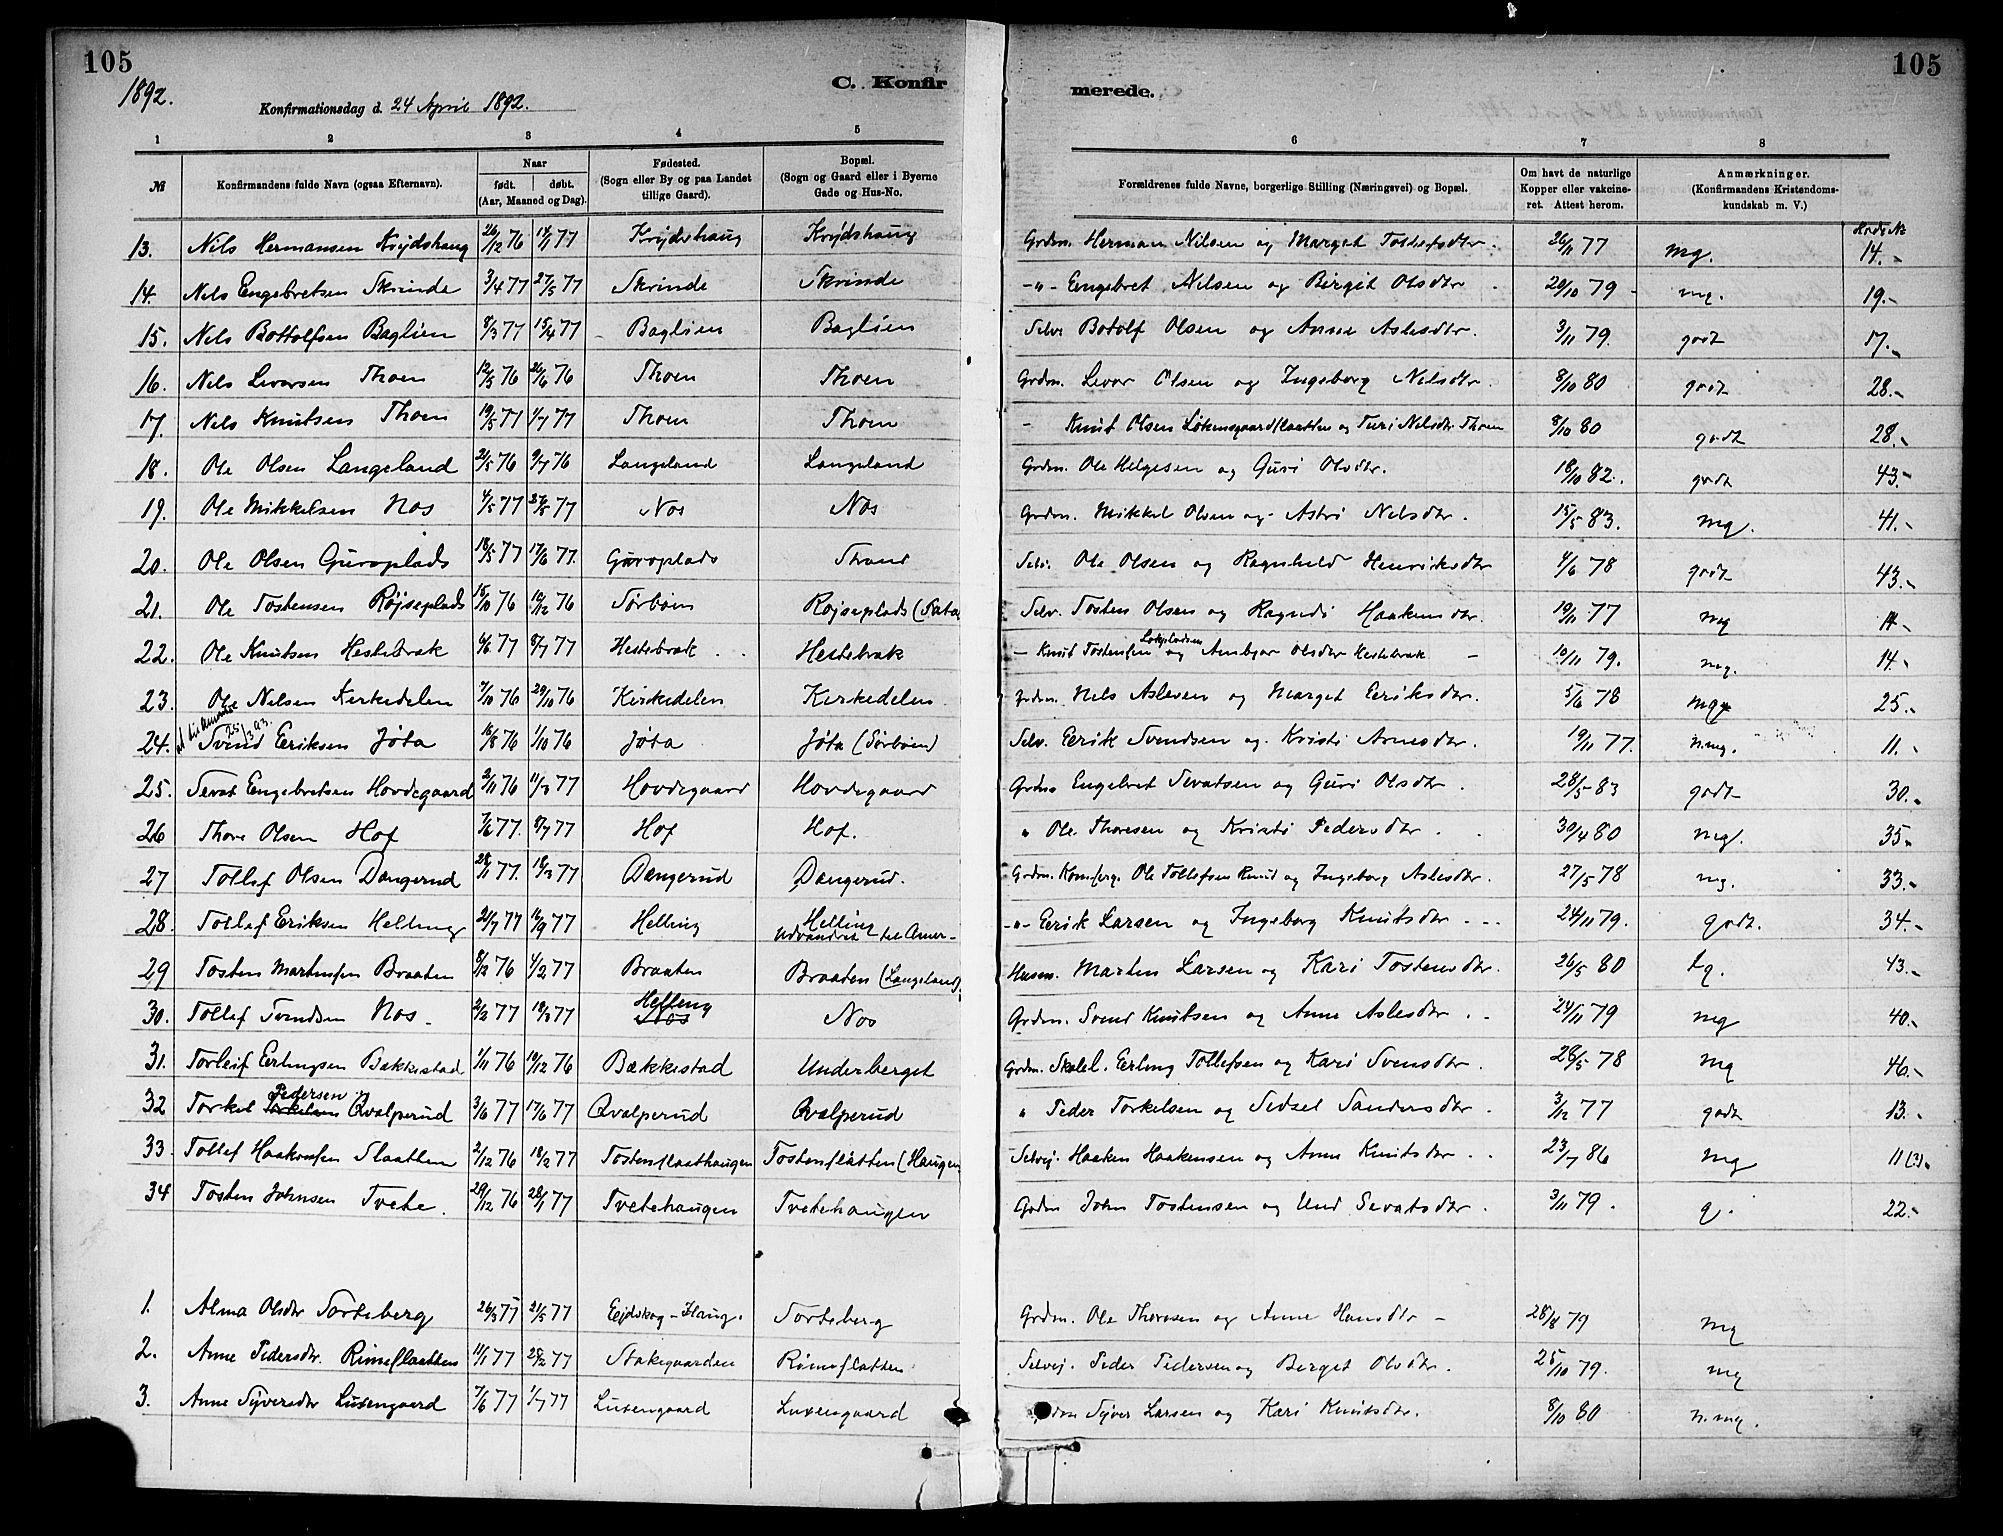 105
105
1892.
C. Konfir
merede.
Konfirmationsdag d. 24 April 1892.
1 2 3 4 5 6 7 8
№ Konfirmandens fulde Navn (ogsaa Efternavn). Naar født. døbt. (Aar, Maaned og Dag). Fødested. (Sogn eller By og paa Landet tillige Gaard). Bopæl. (Sogn og Gaard eller i Byerne Gade og Hus-No. Forældrenes fulde Navne, borgerlige Stilling (Næringsvei) og Bopæl. Om havt de naturlige Kopper eller vakcineret. Attest herom. Anmærkninger. (Konfirmandens Kristendomskundskab m. V.)
13. Nils Hermansen 26/12 76 77 Grdm. Herman Nilsen og Marget Tostefsdtr. 26/11 77 mg. 14.-
14. Nils Engebretsen Skrinde 3/4 77 27/5 77 Skrinde Skrinde -"- Engebret Nilsen og Birgit Olsdtr 20/10 79 mg. 19.-
15. Nils Bottolfsen Baglien 8/3 77 15/4 77 Baglien Baglien Selve Botolf Olsen og Anne Aslesdtr. 3/11 79. godt 17.-
16. Nils Levorsen Thoen 12/5 76 26/6 76 Thoen Thoen Grdm. Levor Olsen og Ingeborg Nilsdtr. 8/10 80 godt 28.-
17. Nils Knutsen Thoen 19/5 77 1/7 77 Thoen Thoen - Knut Olsen og Turi Nilsdtr Thoen 8/10 80 godt 28.-
18. Ole Olsen Langeland 21/5 76 9/7 76 Langeland Langeland Grdm. Ole Helgesen og Guri Olsdtr. 18/10 82. godt 43.-
19. Ole Mikkelsen Nos 4/5 77 77 Nos Nos Grdm. Mikkel Olsen og Astri Nilsdtr. 15/5 83. mg. 41.-
20. Ole Olsen Guroplads 18/5 77 17/6 77. Guroplads Strand Selv. Ole Olsen og Ragnhild Henriksdtr 4/6 78 godt 43.-
21. Ole Tostensen Røjseplads 15/10 76 10/12 76 Sørbøen Røjseplads Selv. Tosten Olsen og Ragndi Haakensdtr. 19/11 77 mg
22. Ole Knutsen Hestebrak 4/6 77 8/7 77 Hestebrak Hestebrak - Knut Tostensen og Ambjør Olsdtr Hestebrak - 10/11 79. mg. 14.-
23. Ole Nilsen Kirkedelen 7/10 76 29/10 76 Kirkedelen Kirkedelen Grdm. Nils Aslesen og Marget Eriksdtr. 5/6 78 25.-
24. Svend Eriksen Jøta 16/8 76 1/10 76 Jøta Jøta (Sørbøen) Selv. Eerik Svendsen og Kristi Arnesdtr. 19/11 77. n.mg. 11.-
25. Sevat Engebretsen Hovdegaard 2/11 76 11/3 77 Hovdegaard Hovdegaard Engebret Sevatsen og Guri Olsdtr 28/5 83 godt 30.-
26 Thore Olsen Hof 7/6 77. 8/7 77 Hof Hof. " Ole Thoresen og Kristi Pedersdtr. 30/4 80 mg. 35.-
27 Tollef Olsen Dangerud 28/1 77. 18/3 77 Dangerud Dangerud. Grdm. Ole Tollefsen og Ingeborg Aslesdtr. 27/5 78 mg. 33.-
28. Tollef Eriksen Helling 21/7 77 16/9 77 Helling Helling udvandret til Amer- -"- Eerik Larsen og Ingeborg Knutsdtr. 24/11 79. godt. 34.-
29 Tosten Martensen Braaten 8/12 76 4/2 77 Braaten Braaten (Langeland). Husm. Marten Larsen og Kari Tostensdtr. 26/5 80 tg. 43.-
30. Tollef Svendsen Nos 2/2 77 18/3 77 Helling Nos Grdm. Svend Knutsen og Anne Aslesdtr. 24/11 79 mg 40.-
31. Torleif Eerlingsen Bækkestad 1/11 76 10/12 76 Bækkestad Underberget Grdm. Skolel. Eerling Tollefsen og Kari Svensdtr. 28/5 78 mg 46.-
32 Torkel Pedersen Qvalperud 3/6 77 17/6 77 Qvalperud Qvalperud " Peder Torkelsen og Sidsel Sandersdtr. 3/12 77 godt 13.-
33. Tollef Haakonsen Slaatten 2/12 76 18/2 77 Tostenslaathaugen Tostenslåtten (Haugen) Selvej. Haaken Haakensen og Anne Knutsdtr. 23/7 86 mg 11(?).
34 Tosten Johnsen Tvete. 29/12 76 28/1 77 Tvetehaugen Tvetehaugen Grdm John Tostensen og Und Sevatsdtr. 3/11 79. g. 22.-
1. Alma Olsdtr Torteberg 26/3 77 21/5 77 Eejdskog - Haug. Torteberg Grdm. Ole Thoresen og Anne Hansdtr - 28/8 79 mg
2. Anne Pedersdtr. Rimeslaatten 14/1 77 25/2 77 Stakegaarden Rimeslatten Selvej. Peder Pedersen og Birget Olsdtr. 25/10 79. mg
3. Anne Syversdtr Lusengaard 7/6 77 1/7 77 Lusengaard Lusengaard Syver Larsen og Kari Knutsdtr. 8/10 80 n.mg.